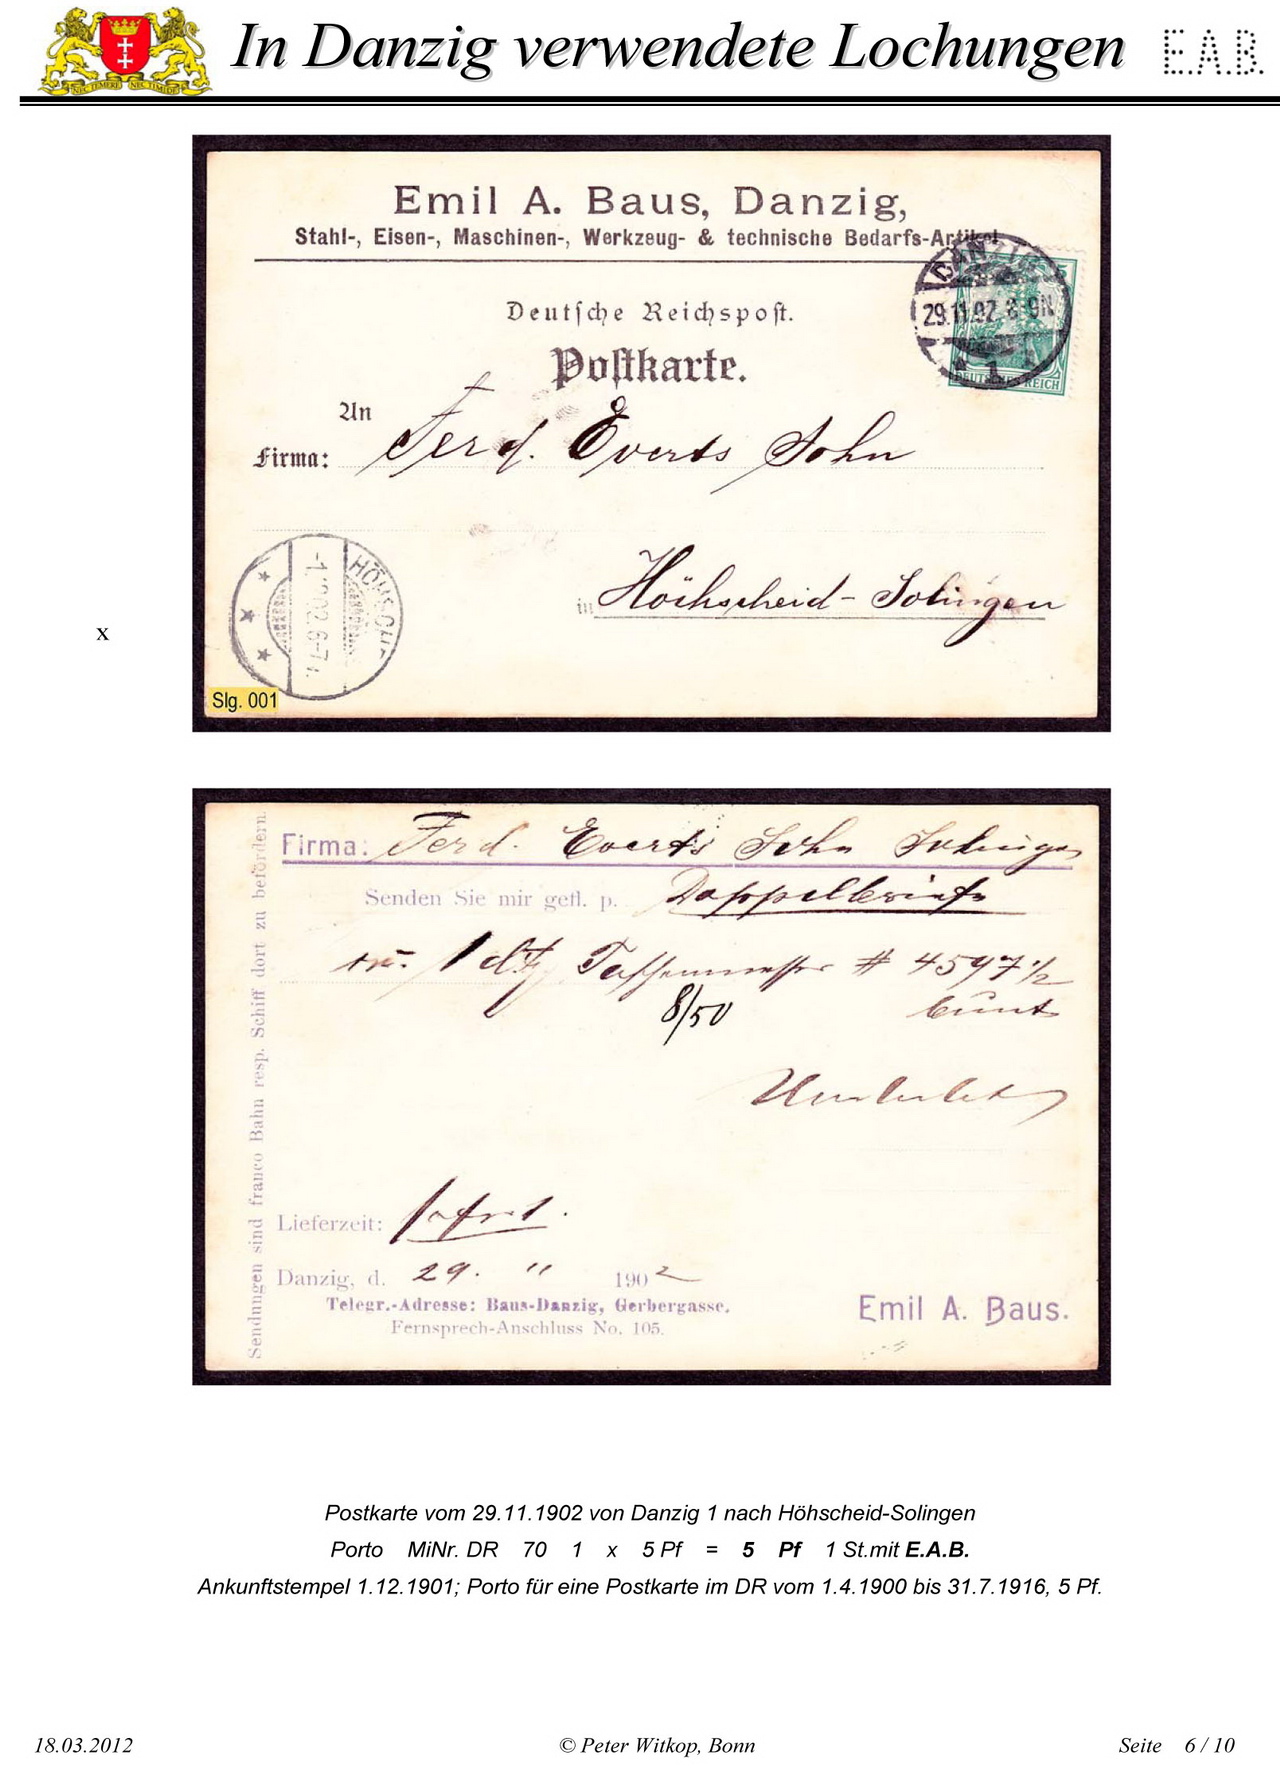 In Danzig verwendete Lochungen E.A.B.
NEC TEMERE NEC TIMIDE
Emil A. Baus, Danzig,
Stahl-, Eisen-, Maschinen-, Werkzeug- & technische Bedarfs-Artikel
DANZIG
29.11.02. 8-9N
1
DEUTSCHES REICH
Deutsche Reichspost.
Postkarte.
An
Firma: Ferd. Everts Sohn
in Höhscheid-Solingen
HÖHSCH
-1.12.02.6-7
Slg. 001
x
Sendungen sind franco Bahn resp. Schiff dort zu befördern.
Firma: Ferd. Everts Sohn Solingen
Senden Sie mir gefl. p. Doppelbrief
1 dtz Taschenmesser # 4597 1/2
8/50 bunt
Lieferzeit: sofort.
Danzig, d. 29. 11 1902
Telegr.-Adresse: Baus-Danzig, Gerbergasse.
Fernsprech-Anschluss No. 105.
Emil A. Baus.
Postkarte vom 29.11.1902 von Danzig 1 nach Höhscheid-Solingen
Porto MiNr. DR 70 1 x 5 Pf = 5 Pf 1 St.mit E.A.B.
Ankunftstempel 1.12.1901; Porto für eine Postkarte im DR vom 1.4.1900 bis 31.7.1916, 5 Pf.
18.03.2012 © Peter Witkop, Bonn Seite 6 / 10